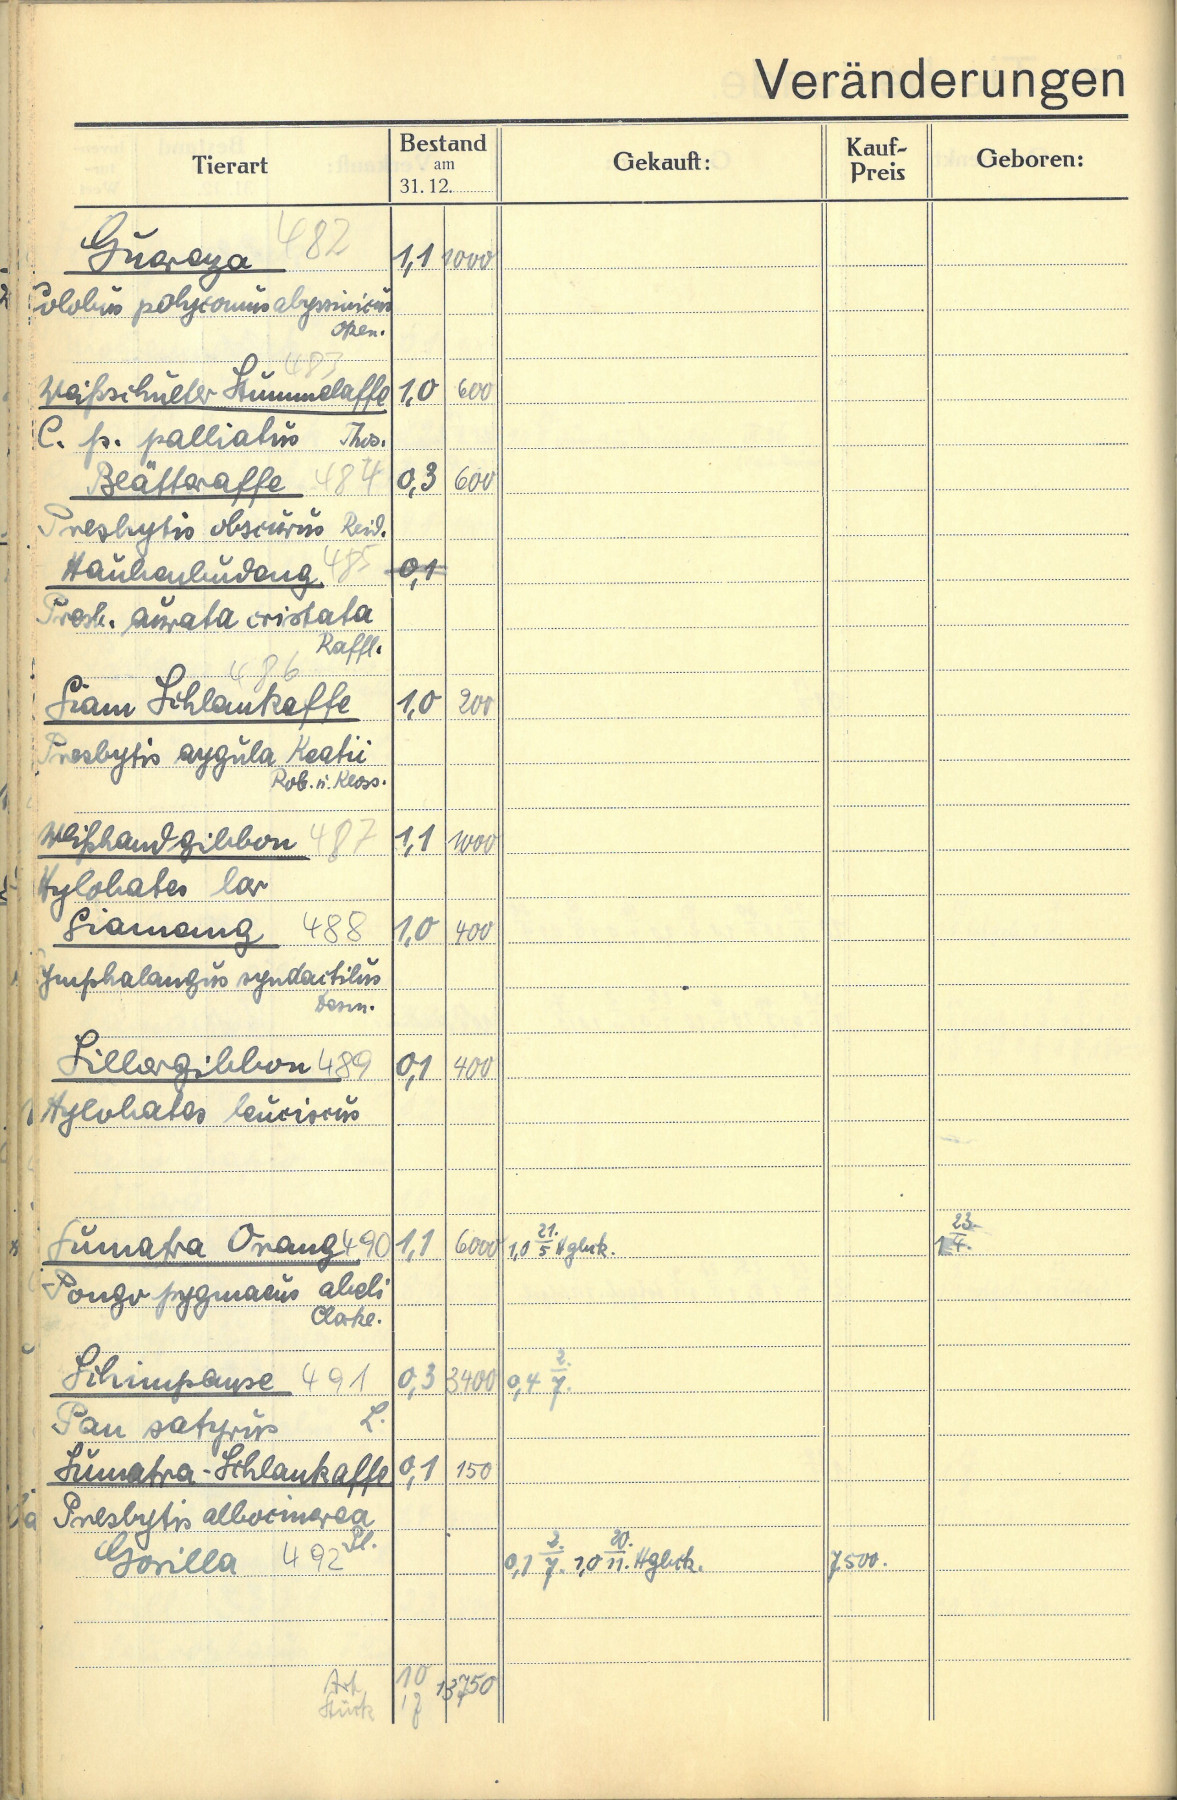 Veränderungen
Tierart Bestand am 31.12. Gekauft: Kauf-Preis Geboren:
Guereza 482 1,1 1000
Colobus polycomus abyssinicus
Oken.
483
Weißschulter Stummelaffe 1,0 600
C. p. palliatus Thos.
Blätteraffe 484 0,3 600
Presbytis obscurus Reid.
Haubenbudeng 485 0,1
Presb. aurata cristata
Raffl.
486
Siam Schlankaffe 1,0 200
Presbytis aygula Keatii
Rob. u. Kloss.
Weißhandgibbon 487 1,1 1000
Hylobates lar
Siamang 488 1,0 400
Symphalangus syndactilus
Desm.
Silbergibbon 489 0,1 400
Hylobates leuciscus
Sumatra Orang 490 1,1 6000 1,0 21./5 Hgbck. 1 23./4.
Pongo pygmaeus abeli
Clarke.
Schimpanse 491 0,3 3400 0,4 2./7.
Pan satyrus L.
Sumatra-Schlankaffe 0,1 150
Presbytis albocinerea
Pl.
Gorilla 492 0,1 2./7. 1,0 20./11. Hgbck. 7500.
Art 10 13750
Stück 17